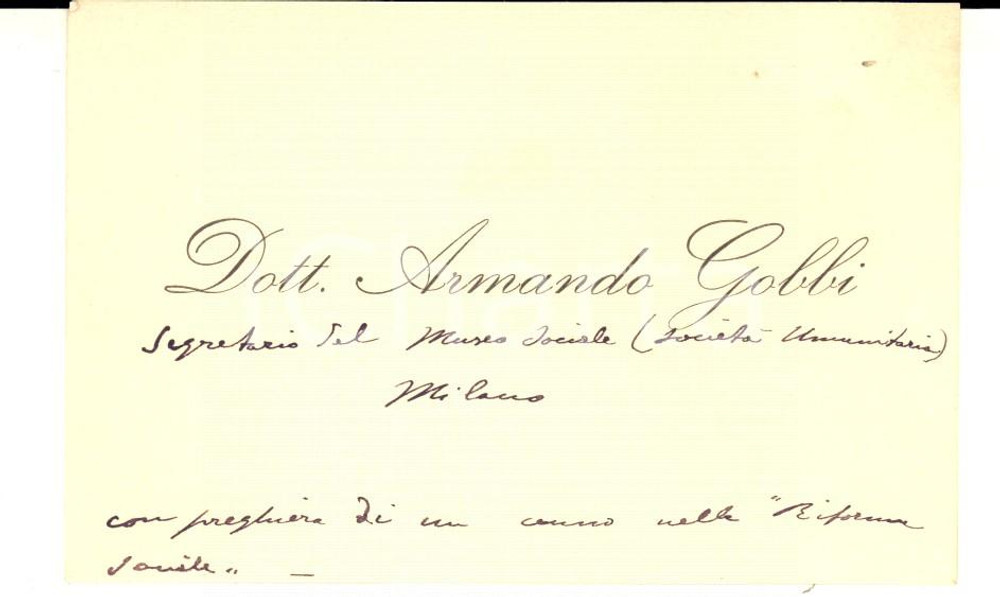 Dott. Armando Gobbi
Segretario del Museo Sociale (Società Umanitaria)
Milano
con preghiera di un cenno nella "Riforma
Sociale". —